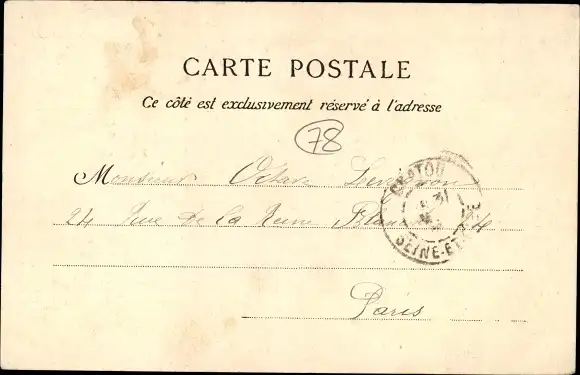 CARTE POSTALE
Ce côté est exclusivement réservé à l'adresse
78
Monsieur Octave
CHATOU
31
SEINE-ET-
24 Rue de la Reine Blanche
Paris